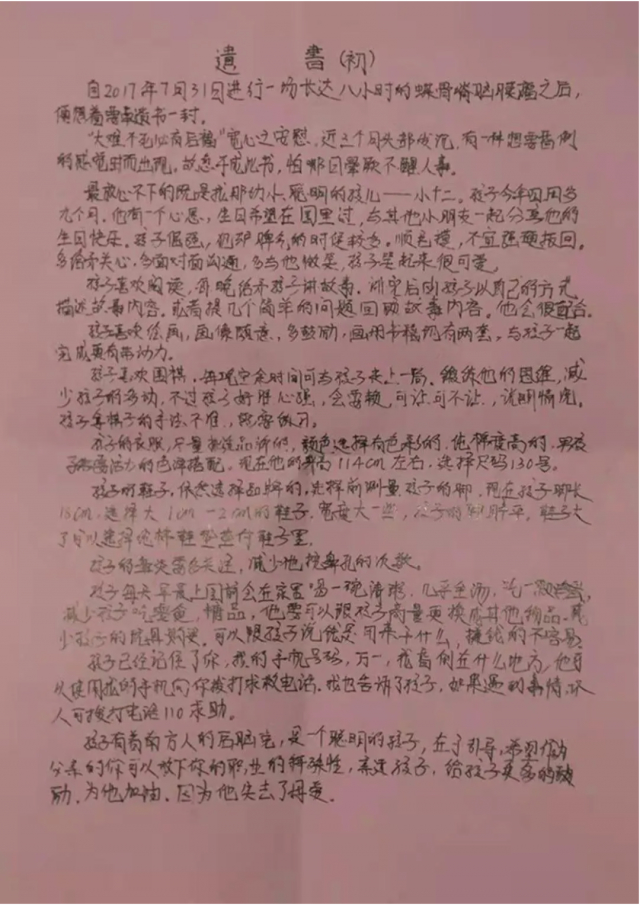 遺 書(初)
自2017年7月31日进行一场长达八小时的蝶骨嵴脑膜瘤之后,
便想着书一封。
"大难不死必有后福"宽心之安慰,近三个月头部发沉,有一种想要昏倒
的感觉时而出现,故怕哪日晕厥不醒人事。
最放心不下的既是我那幼小、聪明的孩儿——小十二。孩子今年四周岁
九个月,他有一个心愿,生日希望在园里过,与其他小朋友一起分享他的
生日快乐。孩子倔强,的时候较多。顺毛摸,不宜强硬扳回。
多给予关心,多面对面沟通,多与他微笑,孩子笑起来很可爱。
孩子喜欢阅读,每晚给予孩子讲故事。讲完后问孩子以自己的方式
描述故事内容。或者提几个简单的问题回助故事内容。他会很配合。
孩子喜欢绘画,画像随意,多鼓励,画册书稿现有两套,与孩子一起
完成更有带动力。
孩子喜欢围棋,每晚空余时间可与孩子来上一局。锻练他的思维,减
少孩子的多动,不过孩子好胜心强,会耍赖,可让可不让,说明情况。
孩子拿棋子的手法不准,练习。
孩子的衣服,尽量选品牌的,颜色选择有色彩的,度高的,男孩
子活力的色泽搭配。现在他的身高114cm左右,选择尺码130号。
孩子的鞋子,依然选择品牌的,选择前测量孩子的脚,现在孩子脚长
18cm,选择大1cm-2cm的鞋子,宽度大一些,孩子的脚平,鞋子大
了可以选择优棉鞋垫垫付鞋子里。
孩子的鼻炎需多关注,减少他挖鼻孔的次数。
孩子每天早晨上园前会在家宴"易一碗清粥,几乎全汤,
减少孩子吃零食,他要可以跟孩子商量更换成其他物品。减
少孩子的玩具购买。可以跟孩子说钱是用来干什么,挣钱的不容易。
孩子已经记住了你,我的手机号码,万一,我昏倒在什么地方,他可
以使用我的手机向你拨打求救电话。我也告诉了孩子,如果遇到事情,坏
人可拨打电话110求助。
孩子有着南方人的后脑壳,是一个聪明的孩子,在于引导,希望作为
父亲的你可以放下你的职业的特殊性,亲近孩子,给孩子更多的鼓
励,为他加油。因为他失去了母爱。